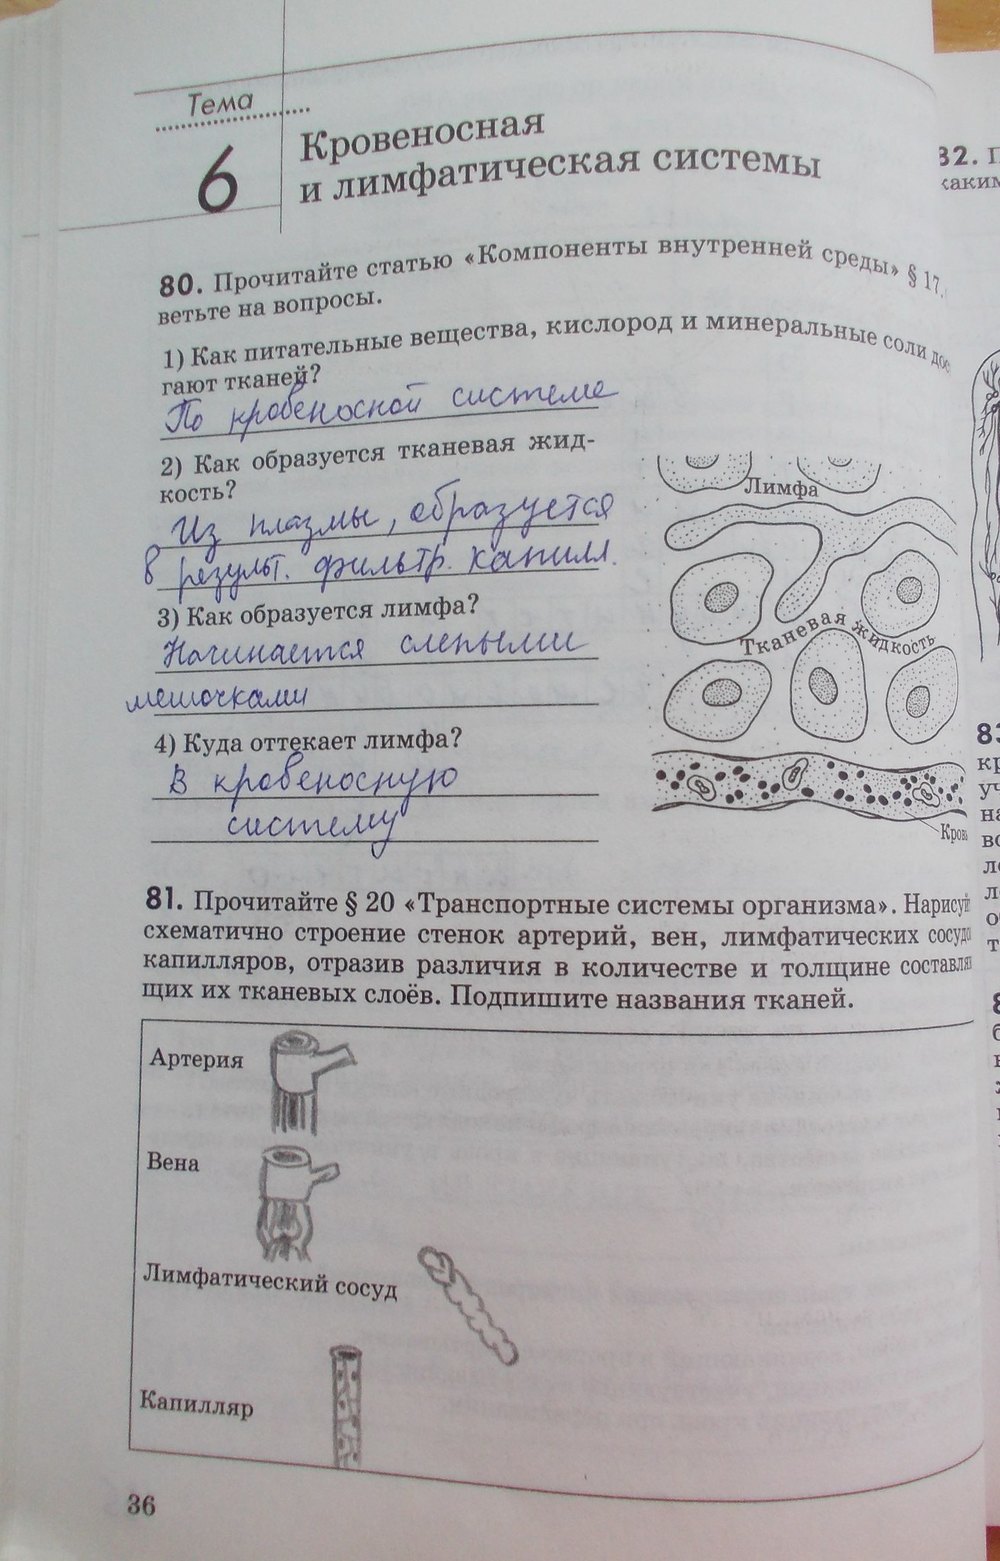 Тема
6
Кровеносная
и лимфатическая системы
80. Прочитайте статью «Компоненты внутренней среды» § 17.
ветьте на вопросы.
1) Как питательные вещества, кислород и минеральные соли дос
гают тканей?
По кровеносной системе
2) Как образуется тканевая жид-
кость?
Из плазмы, образуется
в результ. фильтр. капилл.
3) Как образуется лимфа?
Начинается слепыми
мешочками
4) Куда оттекает лимфа?
В кровеносную
систему
Лимфа
Тканевая жидкость
Кровь
81. Прочитайте § 20 «Транспортные системы организма». Нарисуй
схематично строение стенок артерий, вен, лимфатических сосудо
капилляров, отразив различия в количестве и толщине составля
щих их тканевых слоёв. Подпишите названия тканей.
Артерия
Вена
Лимфатический сосуд
Капилляр
36
32. П
каким
83
кр
уч
на
во